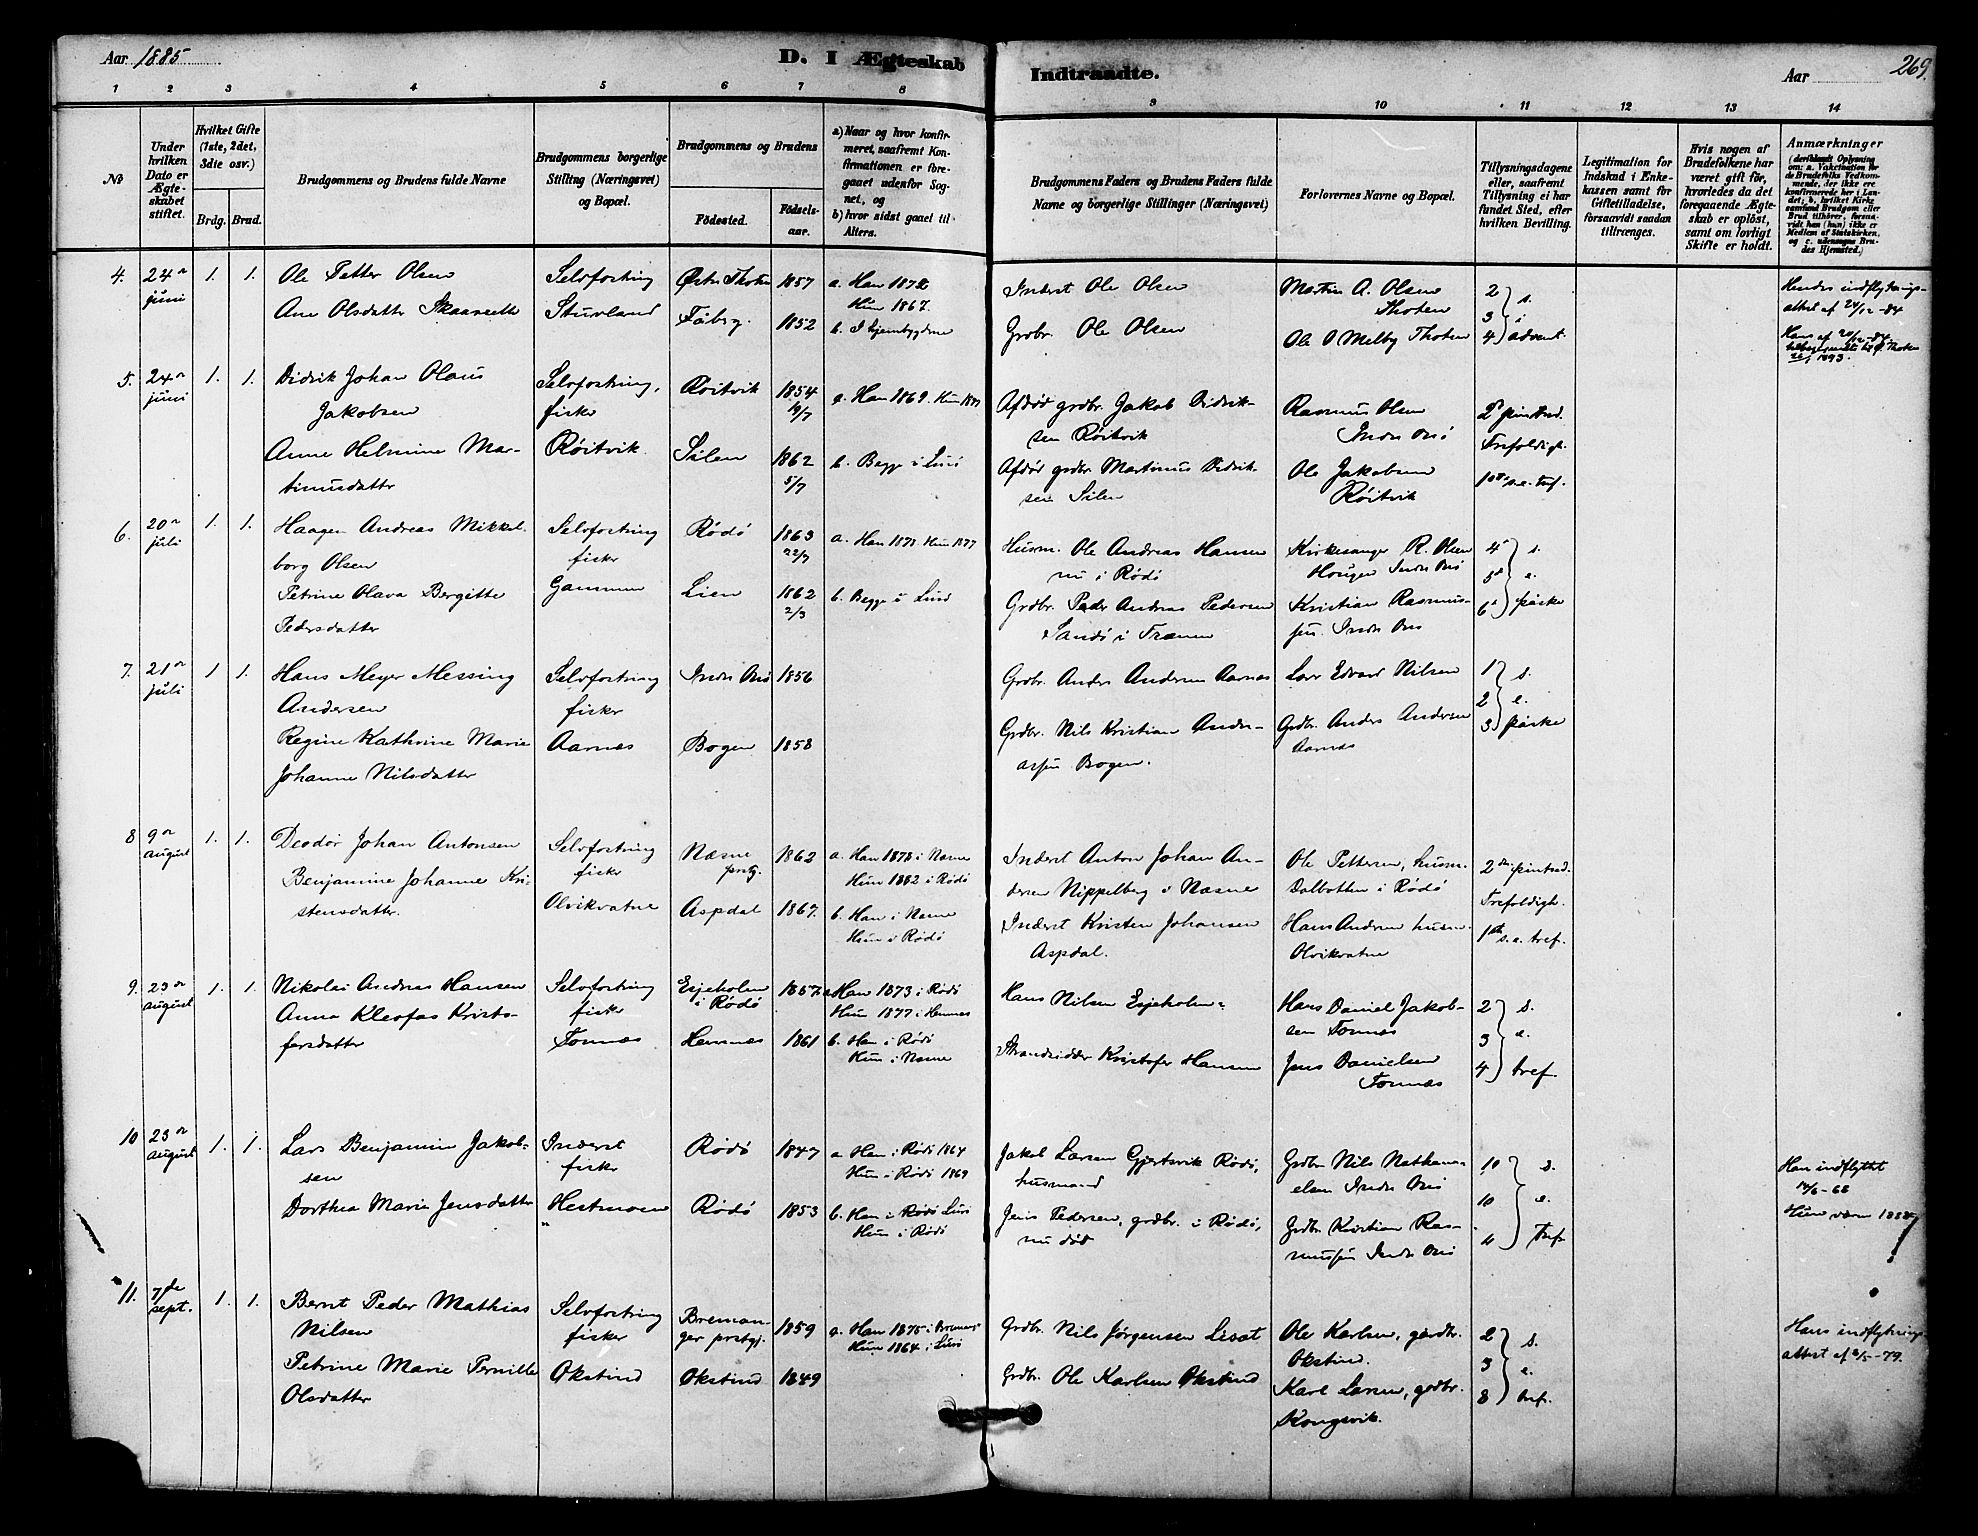 Aar 1885
D. I Ægteskab
Indtraadte.
Aar
269
1 2 3 4 5 6 7 8 9 10 11 12 13 14
No
Under hvilken Dato er Ægteskabet stiftet.
Hvilket Gifte (1ste, 2det, 3die osv.)
Brdg. Brud.
Brudgommens og Brudens fulde Navne
Brudgommens borgerlige Stilling (Næringsvei) og Bopæl.
Brudgommens og Brudens
Födested.
Födsels-aar.
a) Naar og hvor konfirmeret, saafremt Konfirmationen er foregaaet udenfor Sognet, og
b) hvor sidst gaaet til Alters.
Brudgommens Faders og Brudens Faders fulde Navne og borgerlige Stillinger (Næringsvei)
Forlovernes Navne og Bopæl.
Tillysningsdagene eller, saafremt Tillysning ei har fundet Sted, efter hvilken Bevilling.
Legitimation for Indskud i Enkekassen samt for Giftetilladelse, forsaavidt saadan tiltrænges.
Hvis nogen af Brudefolkene har været gift för, hvorledes da det foregaaende Ægteskab er oplöst, samt om lovligt Skifte er holdt.
Anmærkninger
(deriblandt Oplysning om: a. Vakcination for de Brudefolks Vedkommende, der ikke ere konfirmerede her i Landet; b. hvilket Kirkesamfund Brudgom eller Brud tilhörer, forsaavidt han (hun) ikke er Medlem af Statskirken, og c. udensogns Brudes Hjemsted.)
4. 24de juni 1. 1.
Ole Petter Olsen
Ane Olsdatter Skaaresette
Selvforsting
Sturland
Østr. Thoten 1857
Fåberg. 1852
a. Han 1872
Hun 1867.
b. I hjembygderne
Inderst Ole Olsen
Grdbr. Ole Olsen
Martin A. Olsen
Thoten
Ole O Melby Thoten
2 s.
3 i
4 advent.
Hendes indflytnings-
attest af 24/12-84
Hans af 20/12-84.
5. 24de juni 1. 1.
Didrik Johan Olaus
Jakobsen
Anne Helmine Mar-
tinusdatter
Selvforstring,
fisker
Røitvik.
Røitvik 1854 19/7
Silen 1862 5/7
a. Han 1869. Hun 1877
b. Begge i Luri
Afdød grdbr. Jakob Didrik-
sen Røitvik
Afdød grdbr. Martinus Didrik-
sen Silen
Rasmus Olsen
Indr. Onö
Ole Jakobsen
Røitvik
2den pintsed.
Trefoldigh.
1ste s. e. tref.
6. 20de juli 1. 1.
Haagen Andreas Mikkel-
borg Olsen
Petrine Olava Bergitte
Pedersdatter
Selvforstring
fisker
Gammen
Rødö 1863 22/7
Lien 1862 2/3
a. Han 1878. Hun 1877
b. Begge i Luri
Husm. Ole Andreas Hansen
nu i Rødö
Grdbr. Peder Andreas Pedersen
Sandö i Trænen
Kirkesanger R. Olsen
Hougen Indr. Onö
Kristian Rasmus-
sen. Indr. Onö
4de s.
5te e.
6te påske
7. 21de juli 1 1.
Hans Meyer Messing
Andersen
Regine Kathrine Marie
Johanne Nilsdatter
Selvforstring
fisker
Aarnes
Indr. Onö 1856
Bogen 1858
Grdbr. Anders Andersen Aarnes
Grdbr. Nils Kristian Andre-
assen Bogen.
Lars Edvard Nilsen
Grdbr. Anders Andersen
Aarnæs
1 s.
2 e.
3 påske
8 9de august 1. 1.
Deodor Johan Antonsen
Benjamine Johanne Kri-
stensdatter.
Selvforstring
fisker
Olvikvatne
Næsne prstg. 1862
Aspdal 1867.
a. Han 1878 i Næsne
Hun 1882 i Rødö
b. Han i Næsne
Hun i Rødö
Inderst Anton Johan An-
dersen Nippelberg i Næsne
Inderst Kristen Johansen
Aspdal.
Ole Pettersen, husm.
Dalbotten i Rødö
Hans Andersen husm.
Olvikvatne
2den pintsed.
Trefoldigh.
1ste s. e. tref.
9. 23de august 1. 1.
Nikolai Andreas Hansen
Anna Kleofas Kristo-
fersdatter
Selvforstring
fisker
Tonnæs
Esjeholm i Rødö 1857.
Hemnæs 1861
a. Han 1873 i Rødö
Hun 1877 i Hemnæs
b. Han i Rødö
Hun i Næsne
Hans Nilsen Esjeholm
Strandsidder Kristofer Hansen
Hans Daniel Jakob-
sen Tonnæs
Jens Danielsen
Tonnæs
2 s.
3 e.
4 tref.
10 23de august 1. 1.
Lars Benjamin Jakob-
sen
Dorthea Marie Jensdatter
Inderst
fisker
Hestmoen
"
Rødö 1847
Rødö 1853
a Han i Rødö 1864
Hun i Rødö 1869
b. Han i Rødö Luri
Hun i Rødö
Jakob Larsen Gjertsvik Rødö,
husmand
Jens Pedersen, grdbr. i Rødö,
nu död
Grdbr. Nils Nathana-
elsen Indr. Onö
Grdbr. Kristian Ras-
mussen Indr. Onö
10 s.
10 e.
4 Tref.
Han indflyttet
14/6-68
11. 7de sept. 1. 1.
Bernt Peder Mathias
Nilsen
Petrine Marie Pernille
Olsdatter
Selvforstring
fisker
Økstind
Breman-
ger prstgj. 1859
Økstind 1849
a. Han 1875 i Bremang.
Hun 1864 i Luri
Grdbr. Nils Jørgensen Liset
Grdbr. Ole Karlsen Økstind
Ole Karlsen, gårdbr.
Økstind.
Karl Larsen, grdbr.
Kongsvik.
2 s.
3 e.
8 tref.
Hans indflytnings-
attest af 2/5-79.